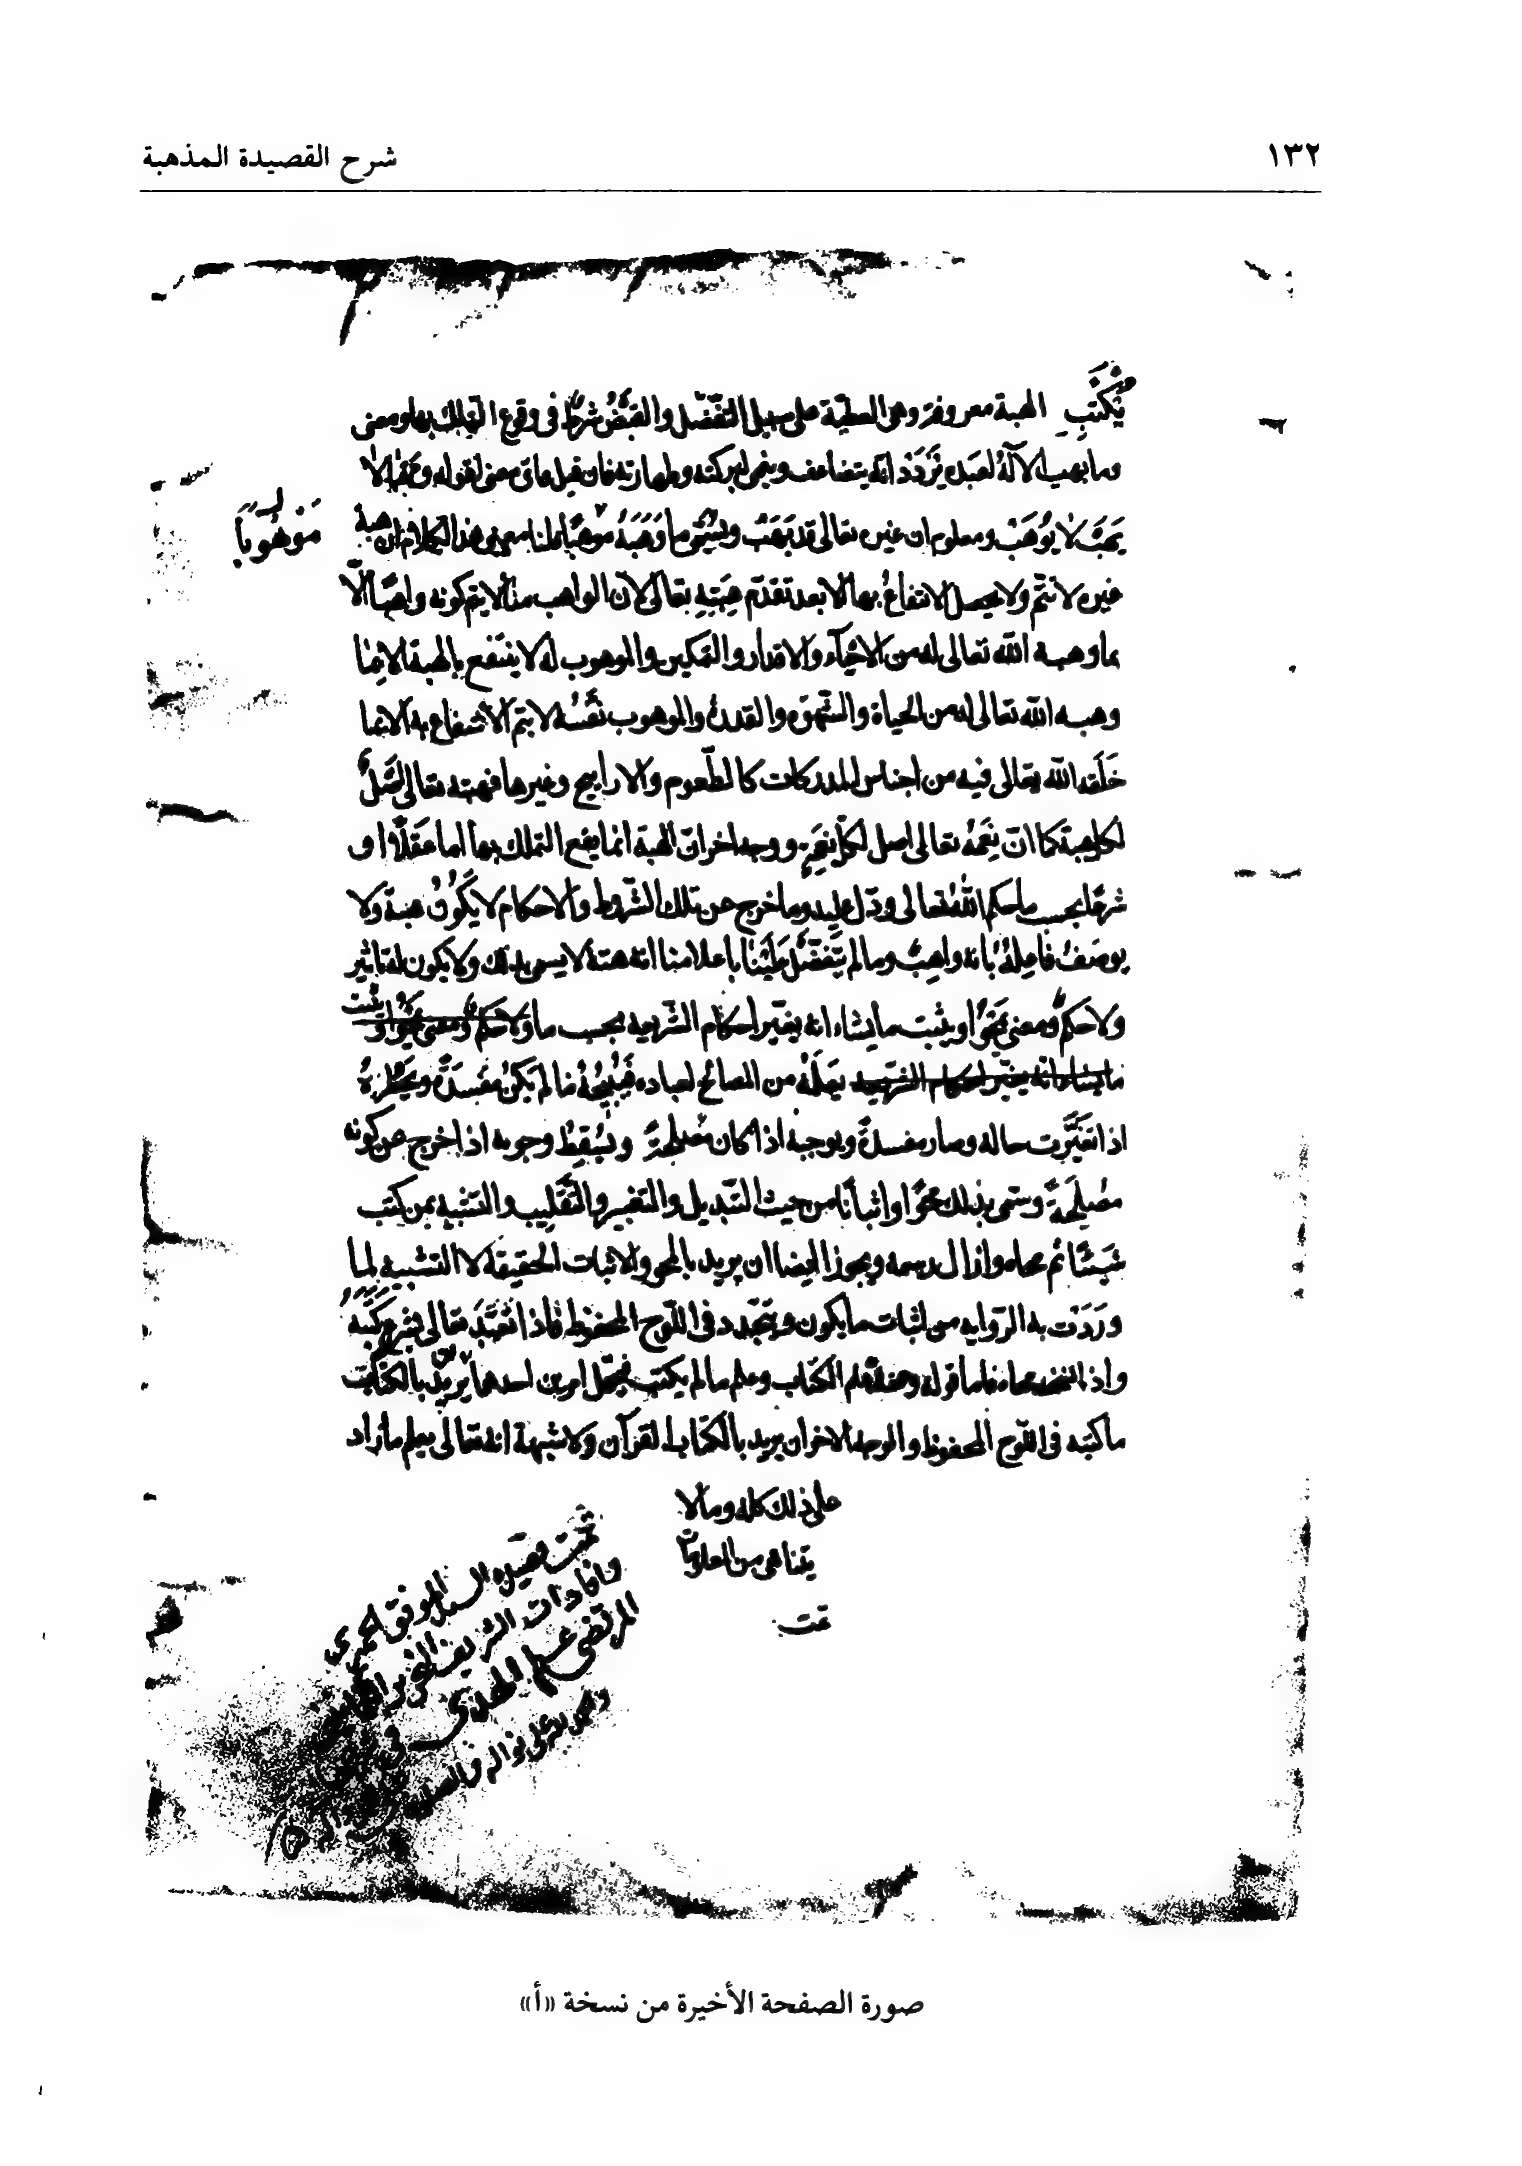 ١٣٢
شرح القصيدة المذهبة
يكتب الهبة معروفة وهى العطية على سبيل التفضل والقبض شرط فى وقوع التملك بها ومعنى
وما يهب الآله لعبده يزدد انه يتضاعف وينمى لبركته وطهارته فان قيل ماى معنى لقوله وغير الاله
يهب لا يوهب ومعلوم ان غيره تعالى قد يهب ويسمى ما وهبه موهبا قلنا معنى هذا الكلام ان هبة
موهوبا
غيره لا تتم ولا يحصل الانتفاع بها الا بعد تقدم هبته تعالى لان الواهب منا لا يتم كونه واهبا الا
بما وهبه الله تعالى له من الاحياء والاقدار والتمكين والموهوب له لا ينتفع بالهبة الا بما
وهبه الله تعالى له من الحياة والشهوة والقدرة والموهوب نفسه لا يتم الانتفاع به الا بما
خلقه الله تعالى فيه من اجناس المدركات كالطعوم والارابيح وغيرها فهبته تعالى اصل
لكل هبة كما ان نعمه تعالى اصل لكل نعم ووجه اخر ان الهبة انما يقع التملك بها اما عقلا او
شرعا بحسب ما حكم الله تعالى ودل عليه وما خرج عن تلك الشروط والاحكام لا يكون هبة ولا
يوصف فاعله بانه واهب وما لم يتفضل علينا باعلامنا انه هبة لا يسمى بذلك ولا يكون له تاثير
ولا حكم ومعنى يمحوا ويثبت ما يشاء انه يغير احكام الشريعه بحسب ما ولا حكم ومعنى يمحوا ويثبت
ما يشاء انه يغير احكام الشريعه يعلمه من المصالح لعباده فيبيحه ما لم يكن مفسدة ويحظره
اذا تغيرت حاله وصار مفسدة ويوجبه اذا كان مصلحة ويسقط وجوبه اذا خرج عن كونه
مصلحة وسمى بذلك محوا واثباتا من حيث التبديل والتغيير والتقليب والتشبيه بمن كتب
شيئا ثم محاه وازال رسمه ويجوز ايضا ان يريد بالمحو والاثبات الحقيقة لا التشبيه لما
وردت به الرواية من اثبات ما يكون ويتجدد فى اللوح المحفوظ فاذا تعبد تعالى بشىء كتبه
واذا نسخه محاه فاما قوله وعنده علم الكتاب وعلم ما لم يكتب فيحتمل امرين احدهما ان يريد بالكتاب
ما كتبه فى اللوح المحفوظ والوجه الاخر ان يريد بالكتاب القرآن ولا شبهة انه تعالى يعلم ما زاد
على ذلك كله وما لا
يتناهى من المعلومات
تمت
تمت قصيدة السيد الموفق الحميرى
وافادات الشريف
المرتضى علم الهدى
صورة الصفحة الأخيرة من نسخة «أ»